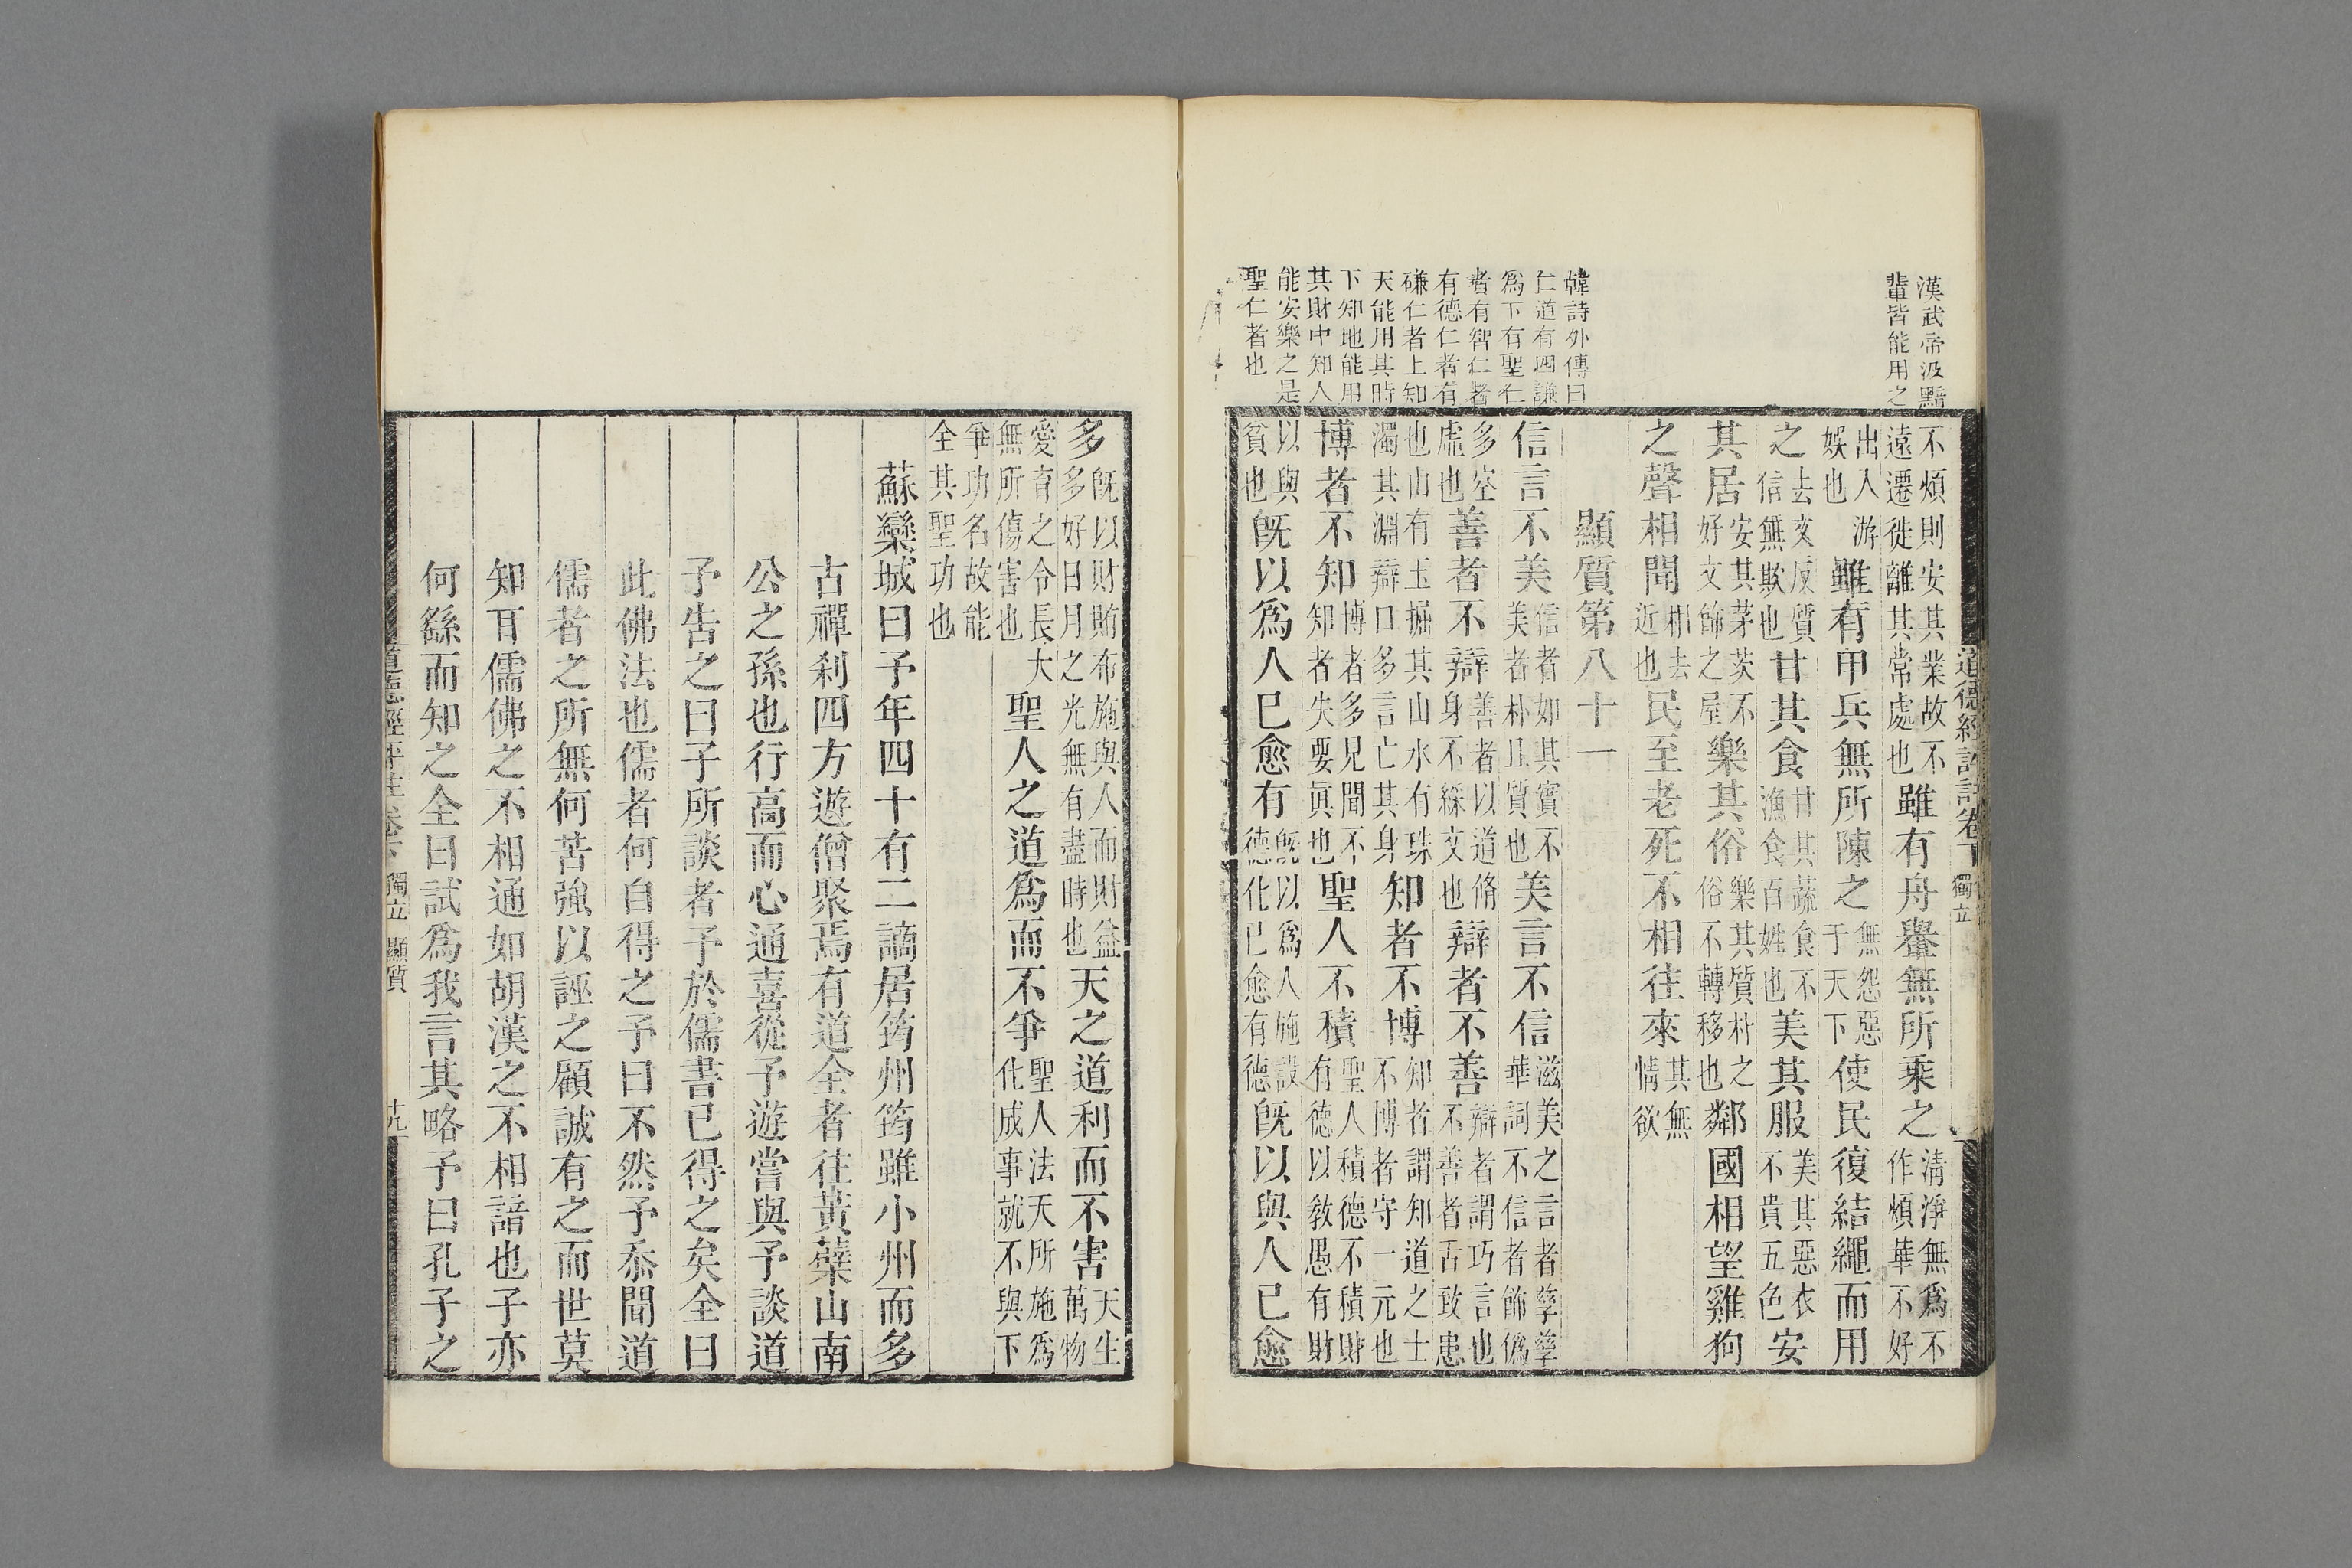 漢武帝汲黯
輩皆能用之
韓詩外傳曰
仁道有四謙
爲下有聖仁
者有智仁者
有德仁者有
磏仁者上知
天能用其時
下知地能用
其財中知人
能安樂之是
聖仁者也
道德經評註卷下 獨立
不煩則安其業故不遠遷徙離其常處也雖有舟轝無所乘之清淨無爲不作煩華不好
出入游娛也雖有甲兵無所陳之無怨惡于天下使民復結繩而用
之去文反質信無欺也甘其食甘其蔬食不漁食百姓也美其服美其惡衣不貴五色安
其居安其茅茨不好文飾之屋樂其俗樂其質朴之俗不轉移也鄰國相望雞狗
之聲相聞相去近也民至老死不相往來其無情欲
顯質第八十一
信言不美信者如其實不美者朴且質也美言不信滋美之言者孳孳華詞不信者飾僞
多空虛也善者不辯善者以道脩身不綵文也辯者不善辯者謂巧言也不善者舌致患
也山有玉掘其山水有珠濁其淵辯口多言亡其身知者不博知者謂知道之士不博者守一元也
博者不知博者多見聞不知者失要眞也聖人不積聖人積德不積財有德以敎愚有財
以與貧也旣以爲人已愈有旣以爲人施設德化已愈有德旣以與人已愈
多旣以財賄布施與人而財益多好日月之光無有盡時也天之道利而不害天生萬物
愛育之令長大無所傷害也聖人之道爲而不爭聖人法天所施爲化成事就不與下
爭功名故能全其聖功也
蘇欒城曰予年四十有二謫居筠州筠雖小州而多
古禪刹四方遊僧聚焉有道全者往黃蘗山南
公之孫也行高而心通喜從予遊嘗與予談道
予告之曰子所談者予於儒書已得之矣全曰
此佛法也儒者何自得之予曰不然予忝聞道
儒者之所無何苦強以誣之顧誠有之而世莫
知耳儒佛之不相通如胡漢之不相諳也子亦
何繇而知之全曰試爲我言其略予曰孔子之
道德經評註卷下 獨立 顯質 十九